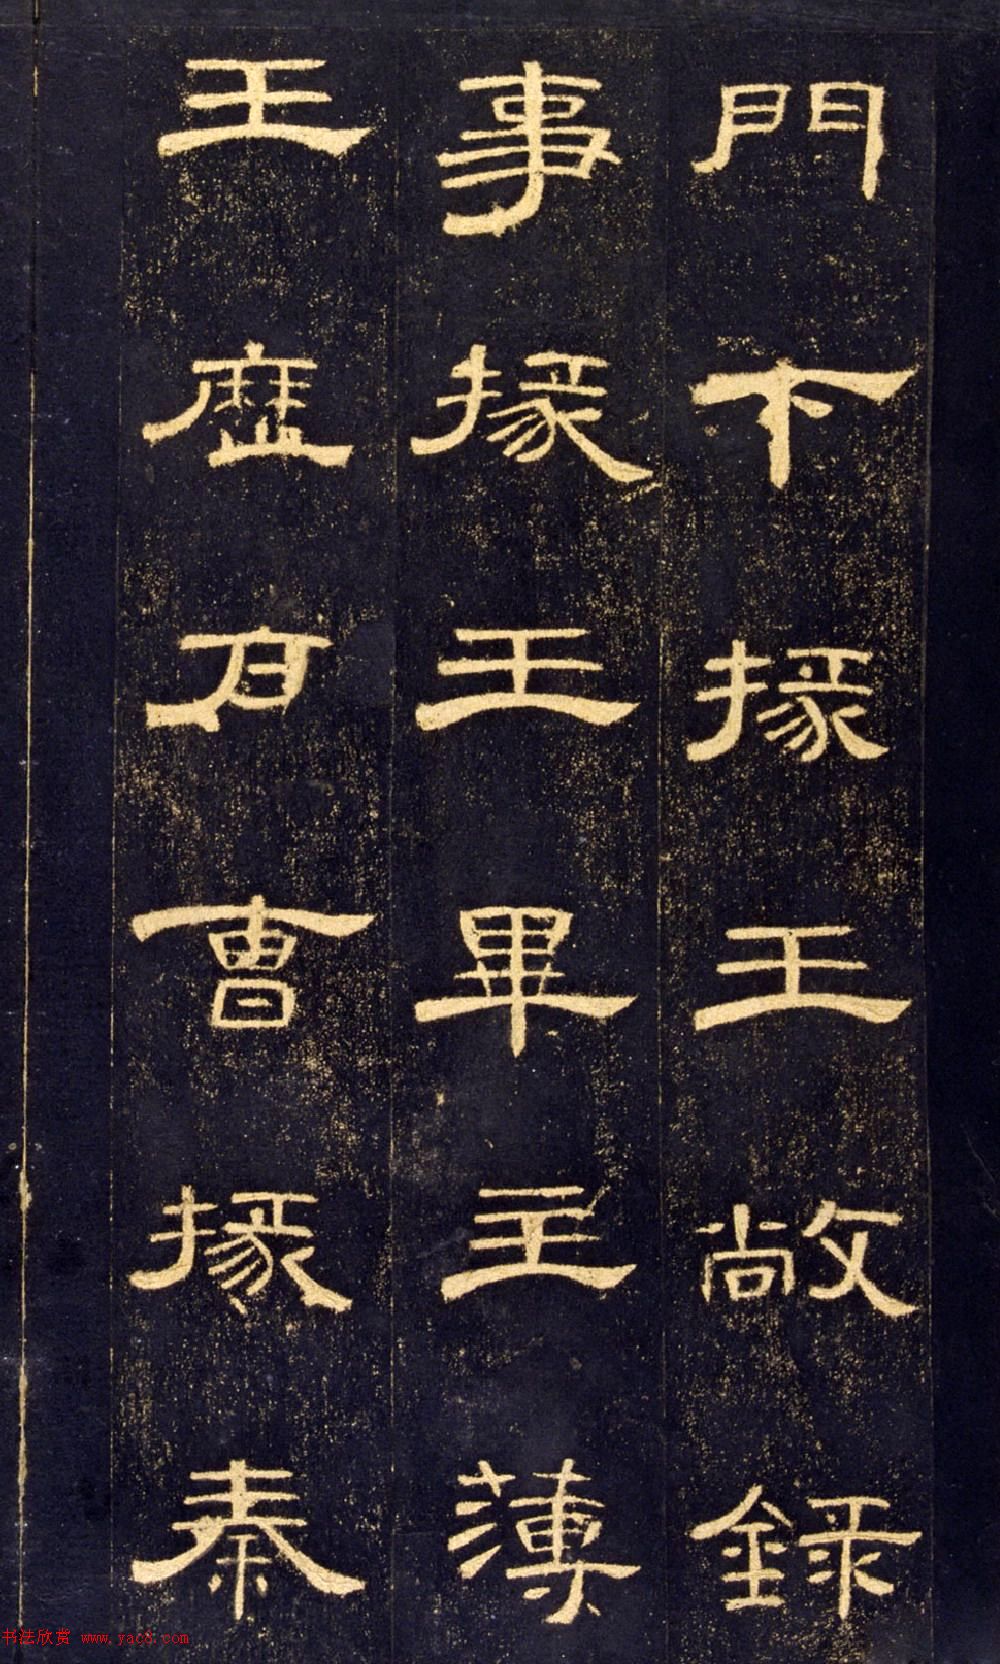 門下掾王敞録
事掾王畢主薄
王歷户曹掾秦
书法欣赏 www.yac8.com